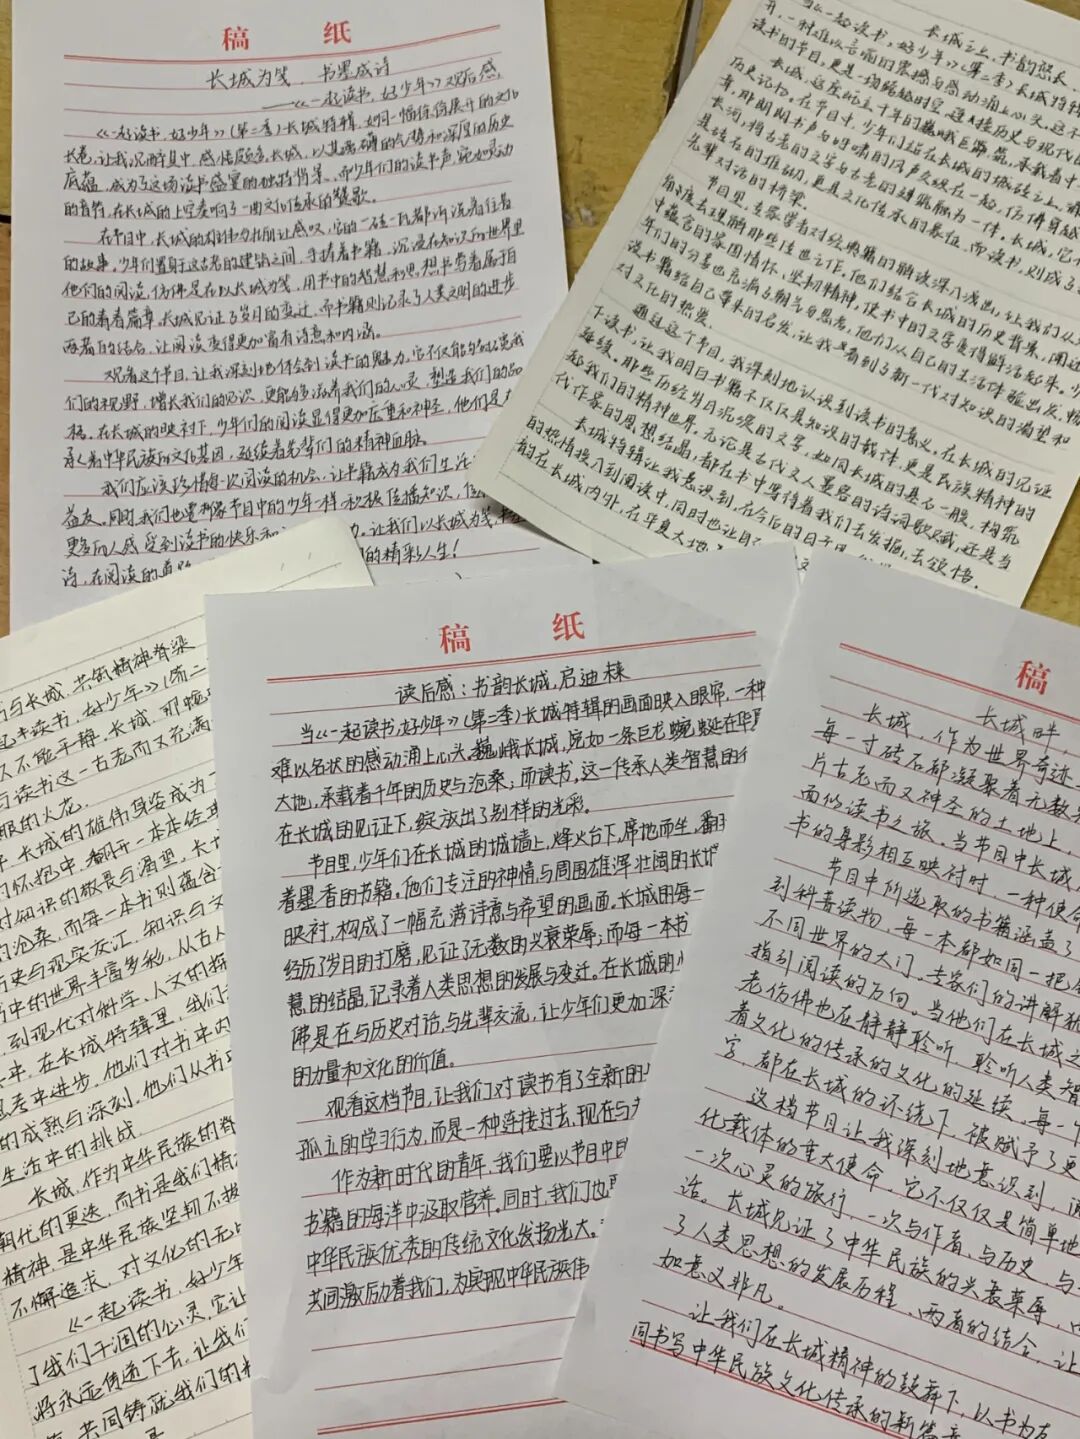 稿 纸
长城为笺，书墨成诗
——《一起读书，好少年》观后感
《一起读书，好少年》(第二季)长城特辑，如同一幅徐徐展开的文化
长卷，让我沉醉其中，感悟颇多。长城，以其磅礴的气势和深厚的历史
底蕴，成为了这场读书盛宴的独特背景，而少年们的读书声，宛如灵动
的音符，在长城的上空奏响了一曲文化传承的赞歌。
在节目中，长城的雄伟与壮丽让感叹，它的一砖一瓦都诉说着往昔
的故事。少年们置身于这古老的建筑之间，手捧着书籍，沉浸在知识的世界里
他们的阅读，仿佛是在以长城为笺，用书中的智慧和思想书写着属于自
己的青春篇章。长城见证了岁月的变迁，而书籍则记录了人类文明的进步
两者的结合，让阅读变得更加富有诗意和内涵。
观看这个节目，让我深刻地体会到读书的魅力，它不仅能够拓宽我
们的视野，增长我们的见识，更能够滋养我们的心灵，塑造我们的品
格。在长城的映衬下，少年们的阅读显得更加庄重和神圣，他们是
承着中华民族的文化基因，延续着先辈们的精神血脉。
我们应该珍惜每一次阅读的机会，让书籍成为我们生活
益友。同时，我们也要像节目中的少年一样，积极传播知识，
更多的人感受到读书的快乐和 让我们以长城为笺，
诗，在阅读的道路 的精彩人生！
长城之上，书韵悠长
当《一起读书，好少年》(第二季)长城特辑
开，一种难以言喻的震撼与感动涌上心头。这不
读书的节目，更是一场跨越时空，连接历史与现代
历史记忆。
长城，这座屹立千年的巍峨巨龙，承载着中
章，在节目中，少年们站在长城的城砖之上，
那朗朗书声与呼啸的风声交织在一起，仿佛穿越
长河，将古老的文字与古老的建筑融为一体。长城，它
是砖石的堆砌，更是文化传承的象征，而读书，则成了与
先辈对话的桥梁。
节目里，专家学者对经典书籍的解读深入浅出，让我们从
角度去理解那些佳也之作。他们结合长城的历史背景，阐述
中蕴含的家国情怀、坚韧精神，使书中的文字变得鲜活起来。少
年们的分享也充满了朝气与思考，他们从自己的生活体验出发，畅
谈书籍给自己带来的启发，让我看到了新一代对知识的渴望和
对文化的热爱。
通过这个节目，我深刻地认识到读书的意义。在长城的见证
下读书，让我明白书籍不仅仅是知识的载体，更是民族精神的
延续。那些历经岁月沉淀的文字，如同长城的基石一般，构筑
起我们的精神世界。无论是古代文人墨客的诗词歌赋，还是当
代作家的思想结晶，都在书中等待着我们去发掘，去领悟。
长城特辑让我意识到，在今后的日子里
的热情投入到阅读中，同时也让自己
韵在长城内外，在华夏大地
书与长城，共筑精神脊梁
起读书，好少年》(第二
久不能平静。长城，那蜿
与读书这一古老而又充满
眼的火花。
，长城的雄伟身姿成为
的怀抱中，翻开一本本
对知识的敬畏与渴望，长
的沧桑，而每一本书则蕴含
历史与现实交汇，知识与文
书中的世界丰富多彩，从古人
，到现代对科学、人文的探
其中。在长城特辑里，我们
思考中进步，他们对书中内
的成熟与深刻，他们从书中
生活中的挑战。
长城，作为中华民族的脊
朝代的更迭，而书是我们精
精神，是中华民族坚韧不拔
不懈追求、对文化的无
《一起读书，好少年
了我们干涸的心灵，它让
将永远传递下去，让我们
，共同铸就我们的精
稿 纸
读后感：书韵长城，启迪未来
当《一起读书，好少年》(第二季)长城特辑的画面映入眼帘，一种
难以名状的感动涌上心头。巍峨长城，宛如一条巨龙蜿蜒在华夏
大地，承载着千年的历史与沧桑；而读书，这一传承人类智慧的
在长城的见证下，绽放出了别样的光彩。
节目里，少年们在长城的城墙上，烽火台下，席地而坐，翻
着墨香的书籍。他们专注的神情与周围雄浑壮阔的长城
映衬，构成了一幅充满诗意与希望的画面。长城的每一
经历了岁月的打磨，见证了无数的兴衰荣辱；而每一本书
慧的结晶，记录着人类思想的发展与变迁。在长城的
佛是在与历史对话，与先辈交流，让少年们更加深
的力量和文化的价值。
观看这档节目，让我们对读书有了全新的
孤立的学习行为，而是一种连接过去、现在与
作为新时代的青年，我们要以节目中的
书籍的海洋中汲取营养。同时，我们也要
中华民族优秀的传统文化发扬光大。
共同激励着我们，为实现中华民族伟
稿
长城畔，
长城，作为世界奇迹
每一寸砖石都凝聚着无数
片古老而又神圣的土地上，
面的读书之旅。当节目中长城
书的身影相互映衬时，一种使命
节目中所选取的书籍涵盖了
到科普读物，每一本都如同一把
不同世界的大门。专家们的讲解
指引阅读的方向。当他们在长城
老仿佛也在静静聆听，聆听人类智
着文化的传承的文化的延续。每一个
字，都在长城的环绕下，被赋予了更
这档节目让我深刻地意识到，阅
化载体的重大使命，它不仅仅是简单地
一次心灵的旅行，一次与作者、与历史、与
话。长城见证了中华民族的兴衰荣辱，
了人类思想的发展历程，两者的结合，让
如意义非凡。
让我们在长城精神的鼓舞下，以书为友
同书写中华民族文化传承的新篇章